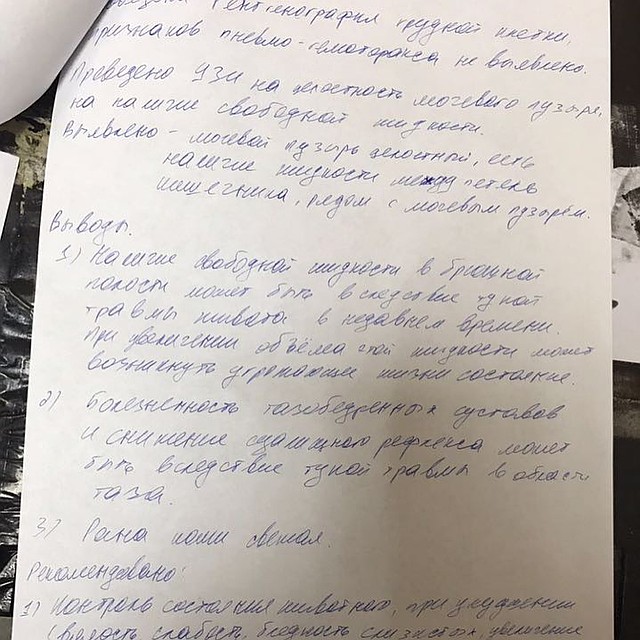 рентгенография грудной клетки,
признаков пневмо-гемоторакса не выявлено.
Проведено УЗИ на целостность мочевого пузыря,
на наличие свободной жидкости.
Выявлено - мочевой пузырь целостный, есть
наличие жидкости между петель
кишечника, рядом с мочевым пузырём.
Выводы.
1) Наличие свободной жидкости в брюшной
полости может быть вследствие тупой
травмы живота в недавнем времени.
При увеличении объёма этой жидкости может
возникнуть угрожающее жизни состояние.
2) Болезненность тазобедренных суставов
и снижение седалищного рефлекса может
быть вследствие тупой травмы в области
таза.
3) Рана кожи свежая.
Рекомендовано:
1) Контроль состояния животного, при ухудшении
(вялость, слабость, бледность слизистых, увеличение